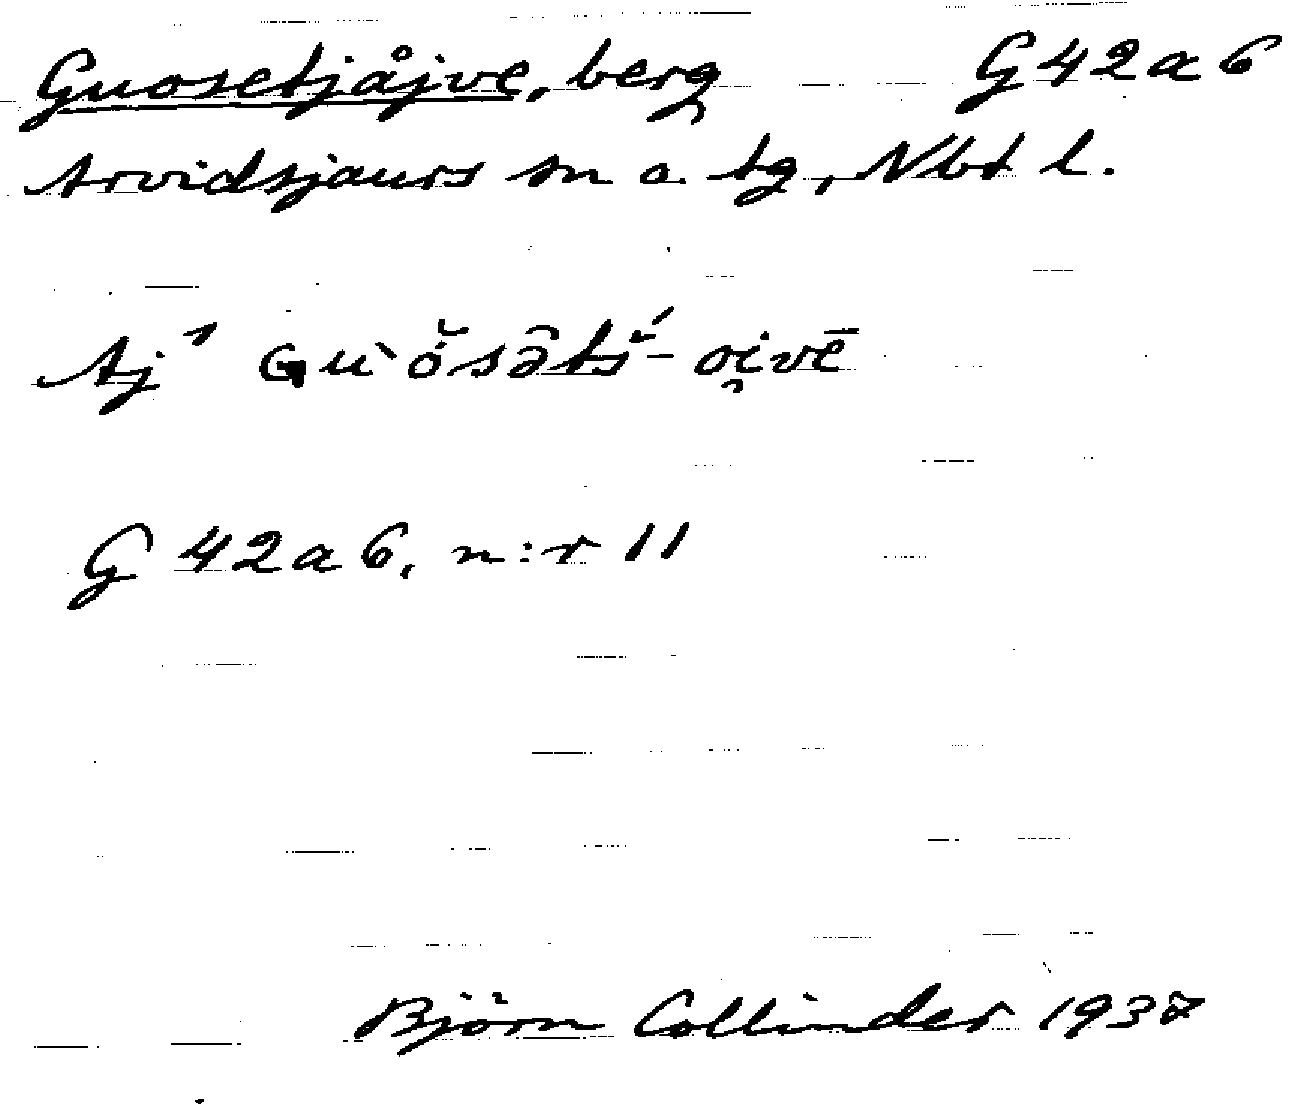 Guosetjåjve, berg G 42 a 6
Arvidsjaurs sn o. tg, Nbt l.
Aj¹ Gu̇̀ŏ́sə̑tš́-oi̯vē
G 42 a 6, n:r 11
Björn Collinder 1937